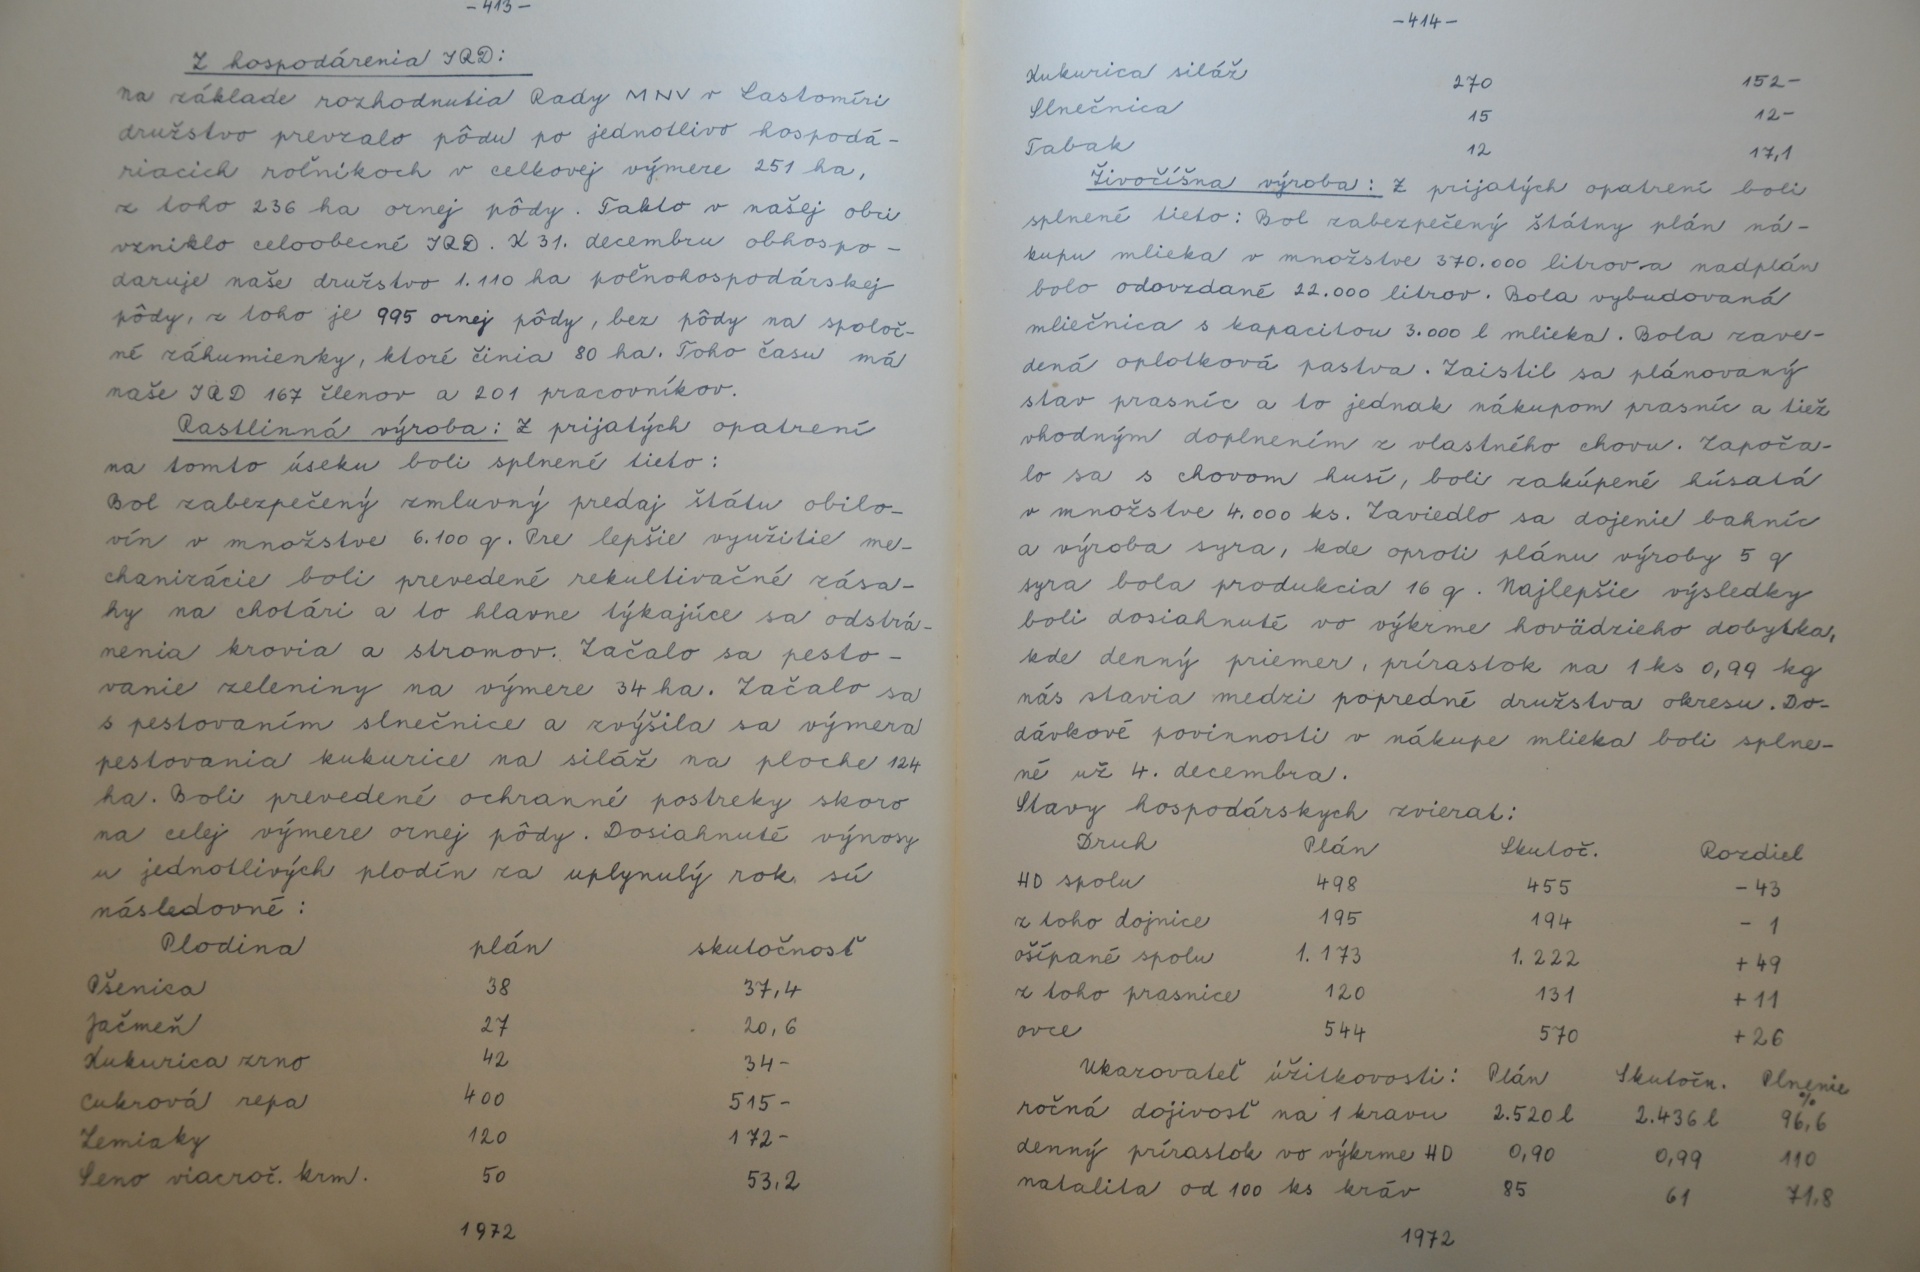 -413-
Z hospodárenia JRD:
na základe rozhodnutia Rady MNV v Lastomíri
družstvo prevzalo pôdu po jednotlivo hospodá-
riacich roľníkoch v celkovej výmere 251 ha,
z toho 236 ha ornej pôdy. Takto v našej obci
vzniklo celoobecné JRD. K 31. decembru obhospo-
daruje naše družstvo 1.110 ha poľnohospodárskej
pôdy, z toho je 995 ornej pôdy, bez pôdy na spoloč-
né záhumienky, ktoré činia 80 ha. Toho času má
naše JRD 167 členov a 201 pracovníkov.
Rastlinná výroba: Z prijatých opatrení
na tomto úseku boli splnené tieto:
Bol zabezpečený zmluvný predaj štátu obilo-
vín v množstve 6.100 q. Pre lepšie využitie me-
chanizácie boli prevedené rekultivačné zása-
hy na chotári a to hlavne týkajúce sa odstrá-
nenia krovia a stromov. Začalo sa pesto-
vanie zeleniny na výmere 34 ha. Začalo sa
s pestovaním slnečnice a zvýšila sa výmera
pestovania kukurice na siláž na ploche 124
ha. Boli prevedené ochranné postreky skoro
na celej výmere ornej pôdy. Dosiahnuté výnosy
u jednotlivých plodín za uplynulý rok sú
následovné:
Plodina plán skutočnosť
Pšenica 38 37,4
Jačmeň 27 20,6
Kukurica zrno 42 34-
Cukrová repa 400 515-
Zemiaky 120 172-
Seno viacroč. krm. 50 53,2
1972
-414-
Kukurica siláž 270 152-
Slnečnica 15 12-
Tabak 12 17,1
Živočíšna výroba: Z prijatých opatrení boli
splnené tieto: Bol zabezpečený štátny plán ná-
kupu mlieka v množstve 370.000 litrov a nadplán
bolo odovzdané 22.000 litrov. Bola vybudovaná
mliečnica s kapacitou 3.000 l mlieka. Bola zave-
dená oplotková pastva. Zaistil sa plánovaný
stav prasníc a to jednak nákupom prasníc a tiež
vhodným doplnením z vlastného chovu. Započa-
lo sa s chovom husí, boli zakúpené húsatá
v množstve 4.000 ks. Zaviedlo sa dojenie bahníc
a výroba syra, kde oproti plánu výroby 5 q
syra bola produkcia 16 q. Najlepšie výsledky
boli dosiahnuté vo výkrme hovädzieho dobytka,
kde denný priemer, prírastok na 1 ks 0,99 kg
nás stavia medzi popredné družstva okresu. Do-
dávkové povinnosti v nákupe mlieka boli splne-
né už 4. decembra.
Stavy hospodárskych zvierat:
Druh Plán Skutoč. Rozdiel
HD spolu 498 455 -43
z toho dojnice 195 194 - 1
ošípané spolu 1.173 1.222 +49
z toho prasnice 120 131 +11
ovce 544 570 +26
Ukazovateľ úžitkovosti: Plán Skutočn. Plnenie
%
ročná dojivosť na 1 kravu 2.520 l 2.436 l 96,6
denný prírastok vo výkrme HD 0,90 0,99 110
natalita od 100 ks kráv 85 61 71,8
1972